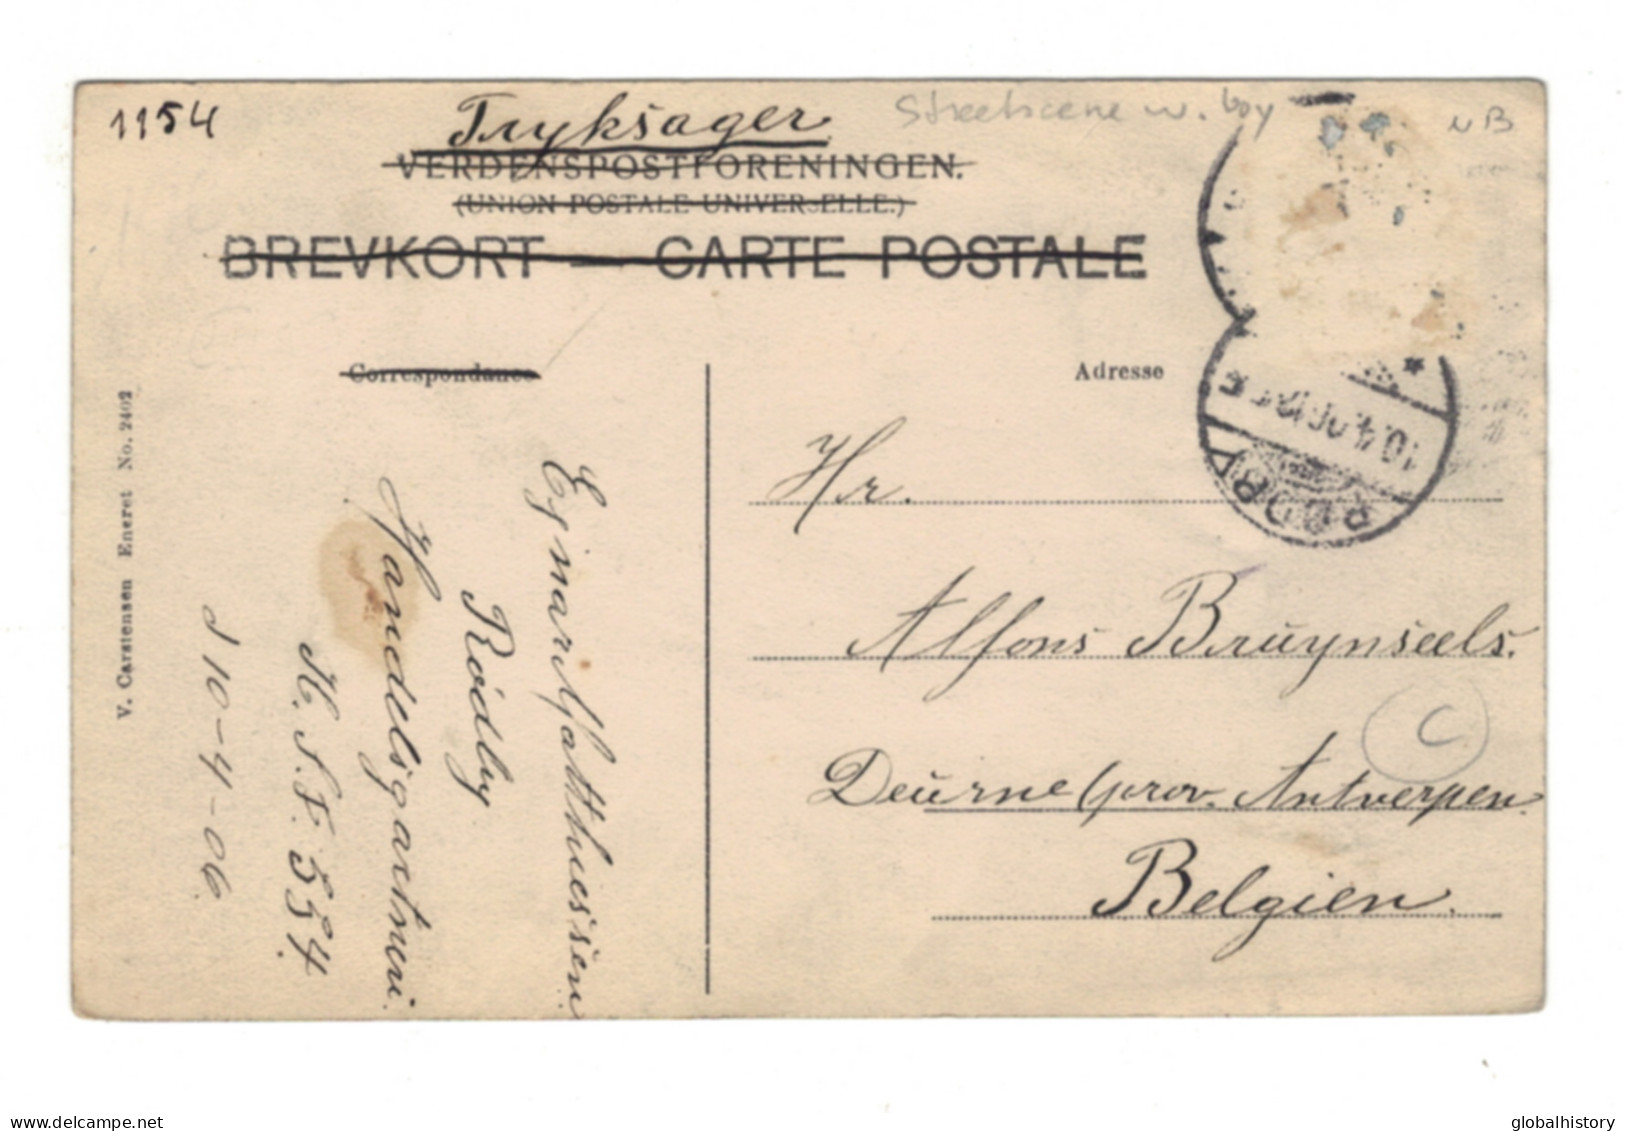 1154
Tryksager
Streetscene w. boy
NB
VERDENSPOSTFORENINGEN.
(UNION POSTALE UNIVERSELLE.)
BREVKORT — CARTE POSTALE
Correspondance
Adresse
10.4.06
RØDBY
Hr.
Alfons Bruynseels.
Deurne (prov. Antwerpen
Belgien.
C
Ejnar Matthiessen
Rödby
Handelsgartneri.
H. S. F. 554
d 10-4-06.
V. Carstensen Eneret No. 2402
www.delcampe.net
globalhistory